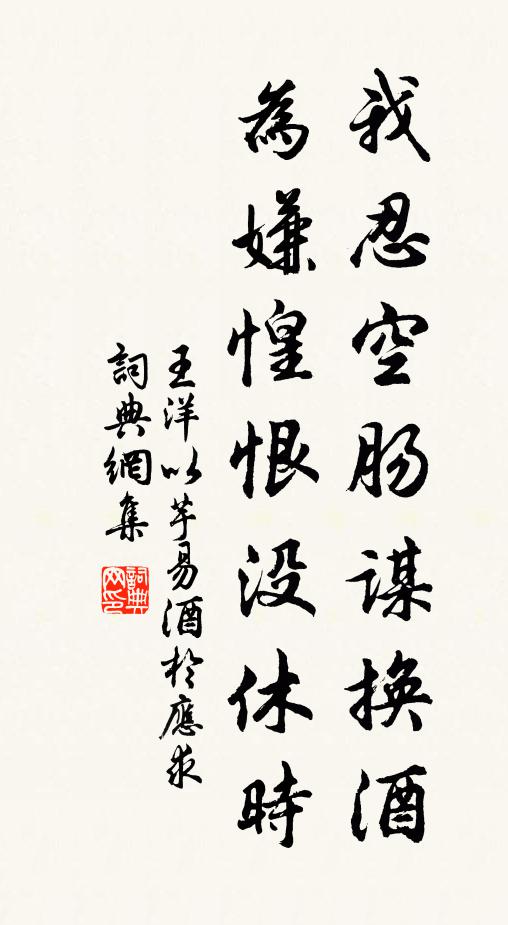 我忍空肠谋换酒
為嫌惶恨没休時
王洋以芋易酒於應求
詞典網集
詞典網印